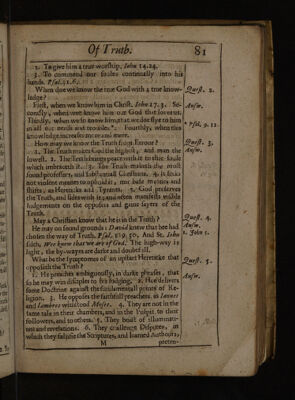 Of Truth. 81
2. To give him a true worship, John 14.24.
3. To commend our soules continually into his
hands. Psal.31.6.
When doe we know the true God with a true know-
ledge?
Quest. 2.
First, when we know him in Christ. John 17.3. Se-
condly, when wee know him our God that loves us.
Answ.
Thirdly, when we so know him, that we doe flye to him
in all our needs and troubles*. Fourthly, when this
* Psal. 9. 10.
knowledge increases more and more.
How may we know the Truth from Errour?
Quest. 3.
1. The Truth makes God the highest, and man the
Answ.
lowest. 2. The Truth brings peace with it to the soule
which imbraceth it. 3. The Truth makes the most
sound professors, and substantiall Christians. 4. It seeks
not violent meanes to uphold it, nor base means and
shifts, as Hereticks and Tyrants. 5. God preserves
the Truth, and sides with it; and often manifests visible
judgements on the opposers and gaine sayers of the
Truth.
May a Christian know that he is in the Truth?
Quest. 4.
He may on sound grounds: David knew that he had
Answ.
chosen the way of Truth, Psal. 119. 30. And St. John
1. John 5.
saith, Wee know that we are of God. The high-way is
light, the by-wayes are darke and doubtfull.
What be the symptomes of an upstart Heretike that
Quest. 5.
opposeth the Truth?
1. He preaches ambiguously, in darke phrases, that
Answ.
so he may win disciples to his lodging. 2. Hee delivers
some Doctrine against the fundamentall points of Re-
ligion. 3. He opposes the faithfull preachers, as Iannes
and Iambres withstood Moses. 4. They are not in the
same tale in their chambers, and in the Pulpit, to their
followers, and to others. 5. They boast of illuminati-
ons and revelations. 6. They challenge Disputes, in
which they falsifie the Scriptures, and learned Authours,
M
preten-